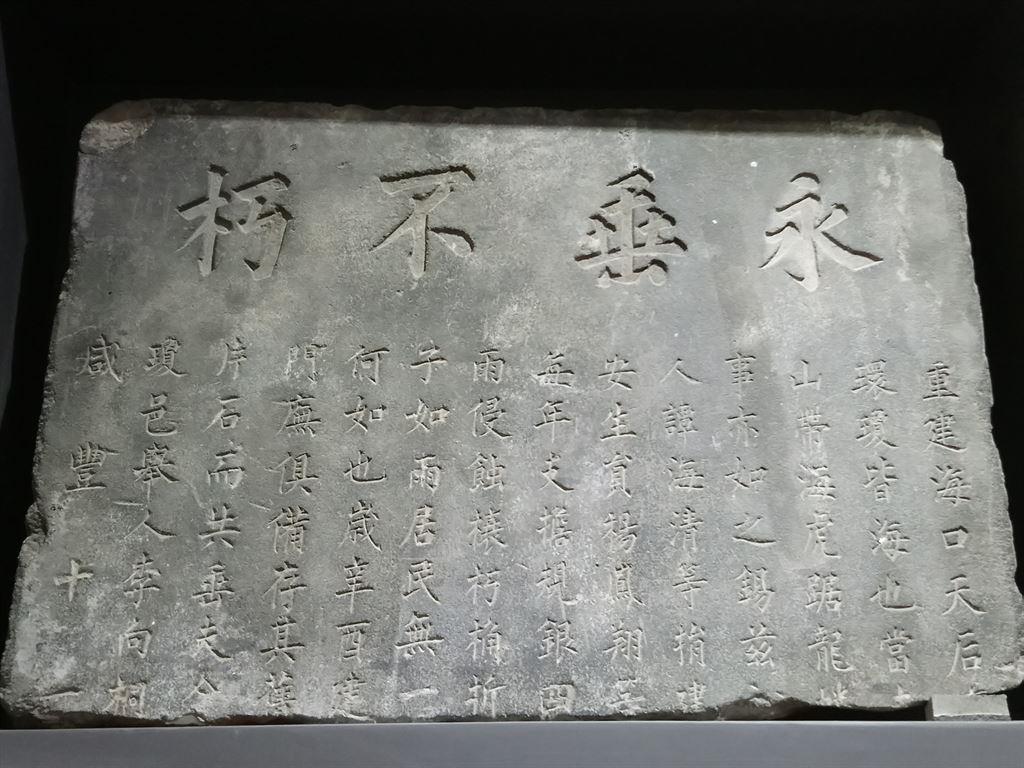 永垂不朽
重建海口天后
環瓊皆海也當
山帶海虎踞龍
事亦如之錫茲
人譚海清等捐建
安生貢楊鳳翔
每年支擔規銀四
雨侵蝕榱朽桷折
子如雨居民無一
何如也歲辛酉建
門廡俱備存其舊
片石而共垂夫
瓊邑舉人李向桐
咸豐十一